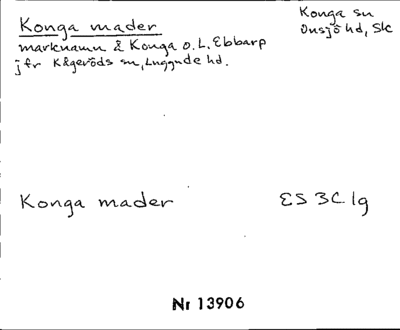 Konga mader
Konga sn
Onsjö hd, Sk
marknamn å Konga o. L. Ebbarp
jfr Kågeröds sn, Luggude hd.
Konga mader
ES 3C 1g
Nr 13906